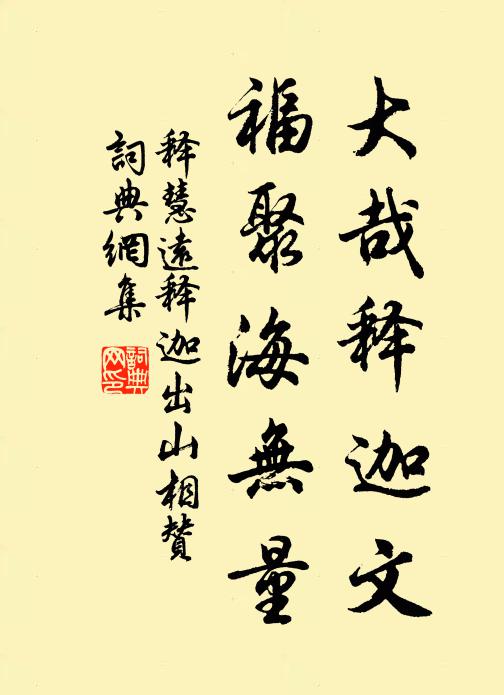 大哉释迦文
福聚海無量
释慧遠释迦出山相赞
詞典網集
詞典
网印